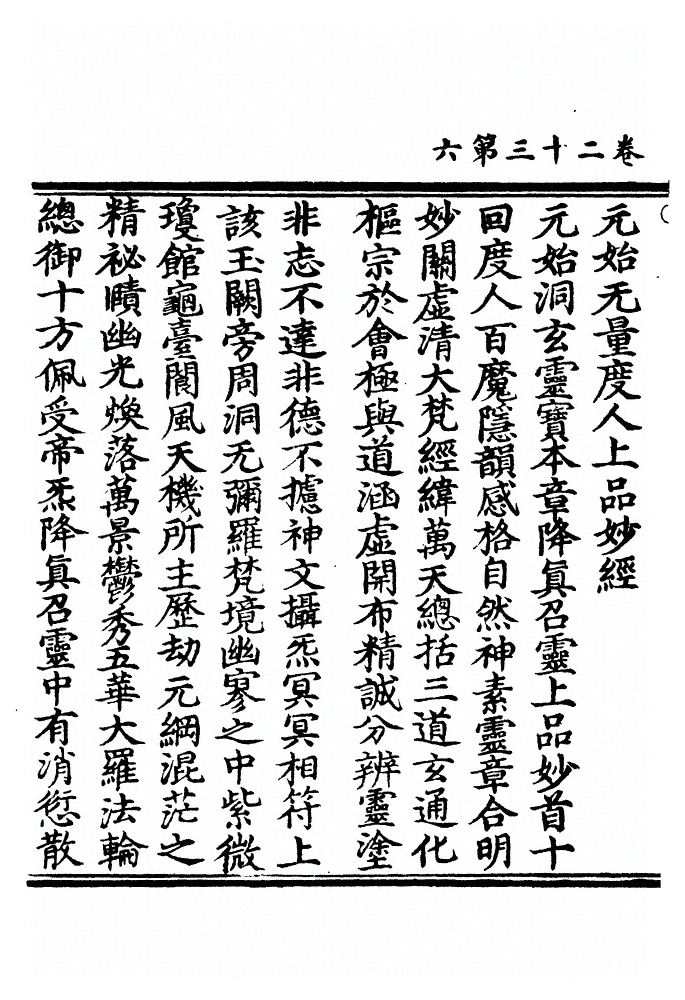 卷二十三第六
元始无量度人上品妙經
元始洞玄靈寶本章降眞召靈上品妙首十
回度人百魔隱韻感格自然神素靈章合明
妙關虛清大梵經緯萬天總括三道玄通化
樞宗於會極與道涵虛開布精誠分辨靈塗
非志不達非德不攄神文攝炁冥冥相符上
該玉闕旁周洞无彌羅梵境幽寥之中紫微
瓊館龜臺閬風天機所主歷劫元綱混茫之
精祕賾幽光煥落萬景鬱秀五華大羅法輪
總御十方佩受帝炁降眞召靈中有消愆散